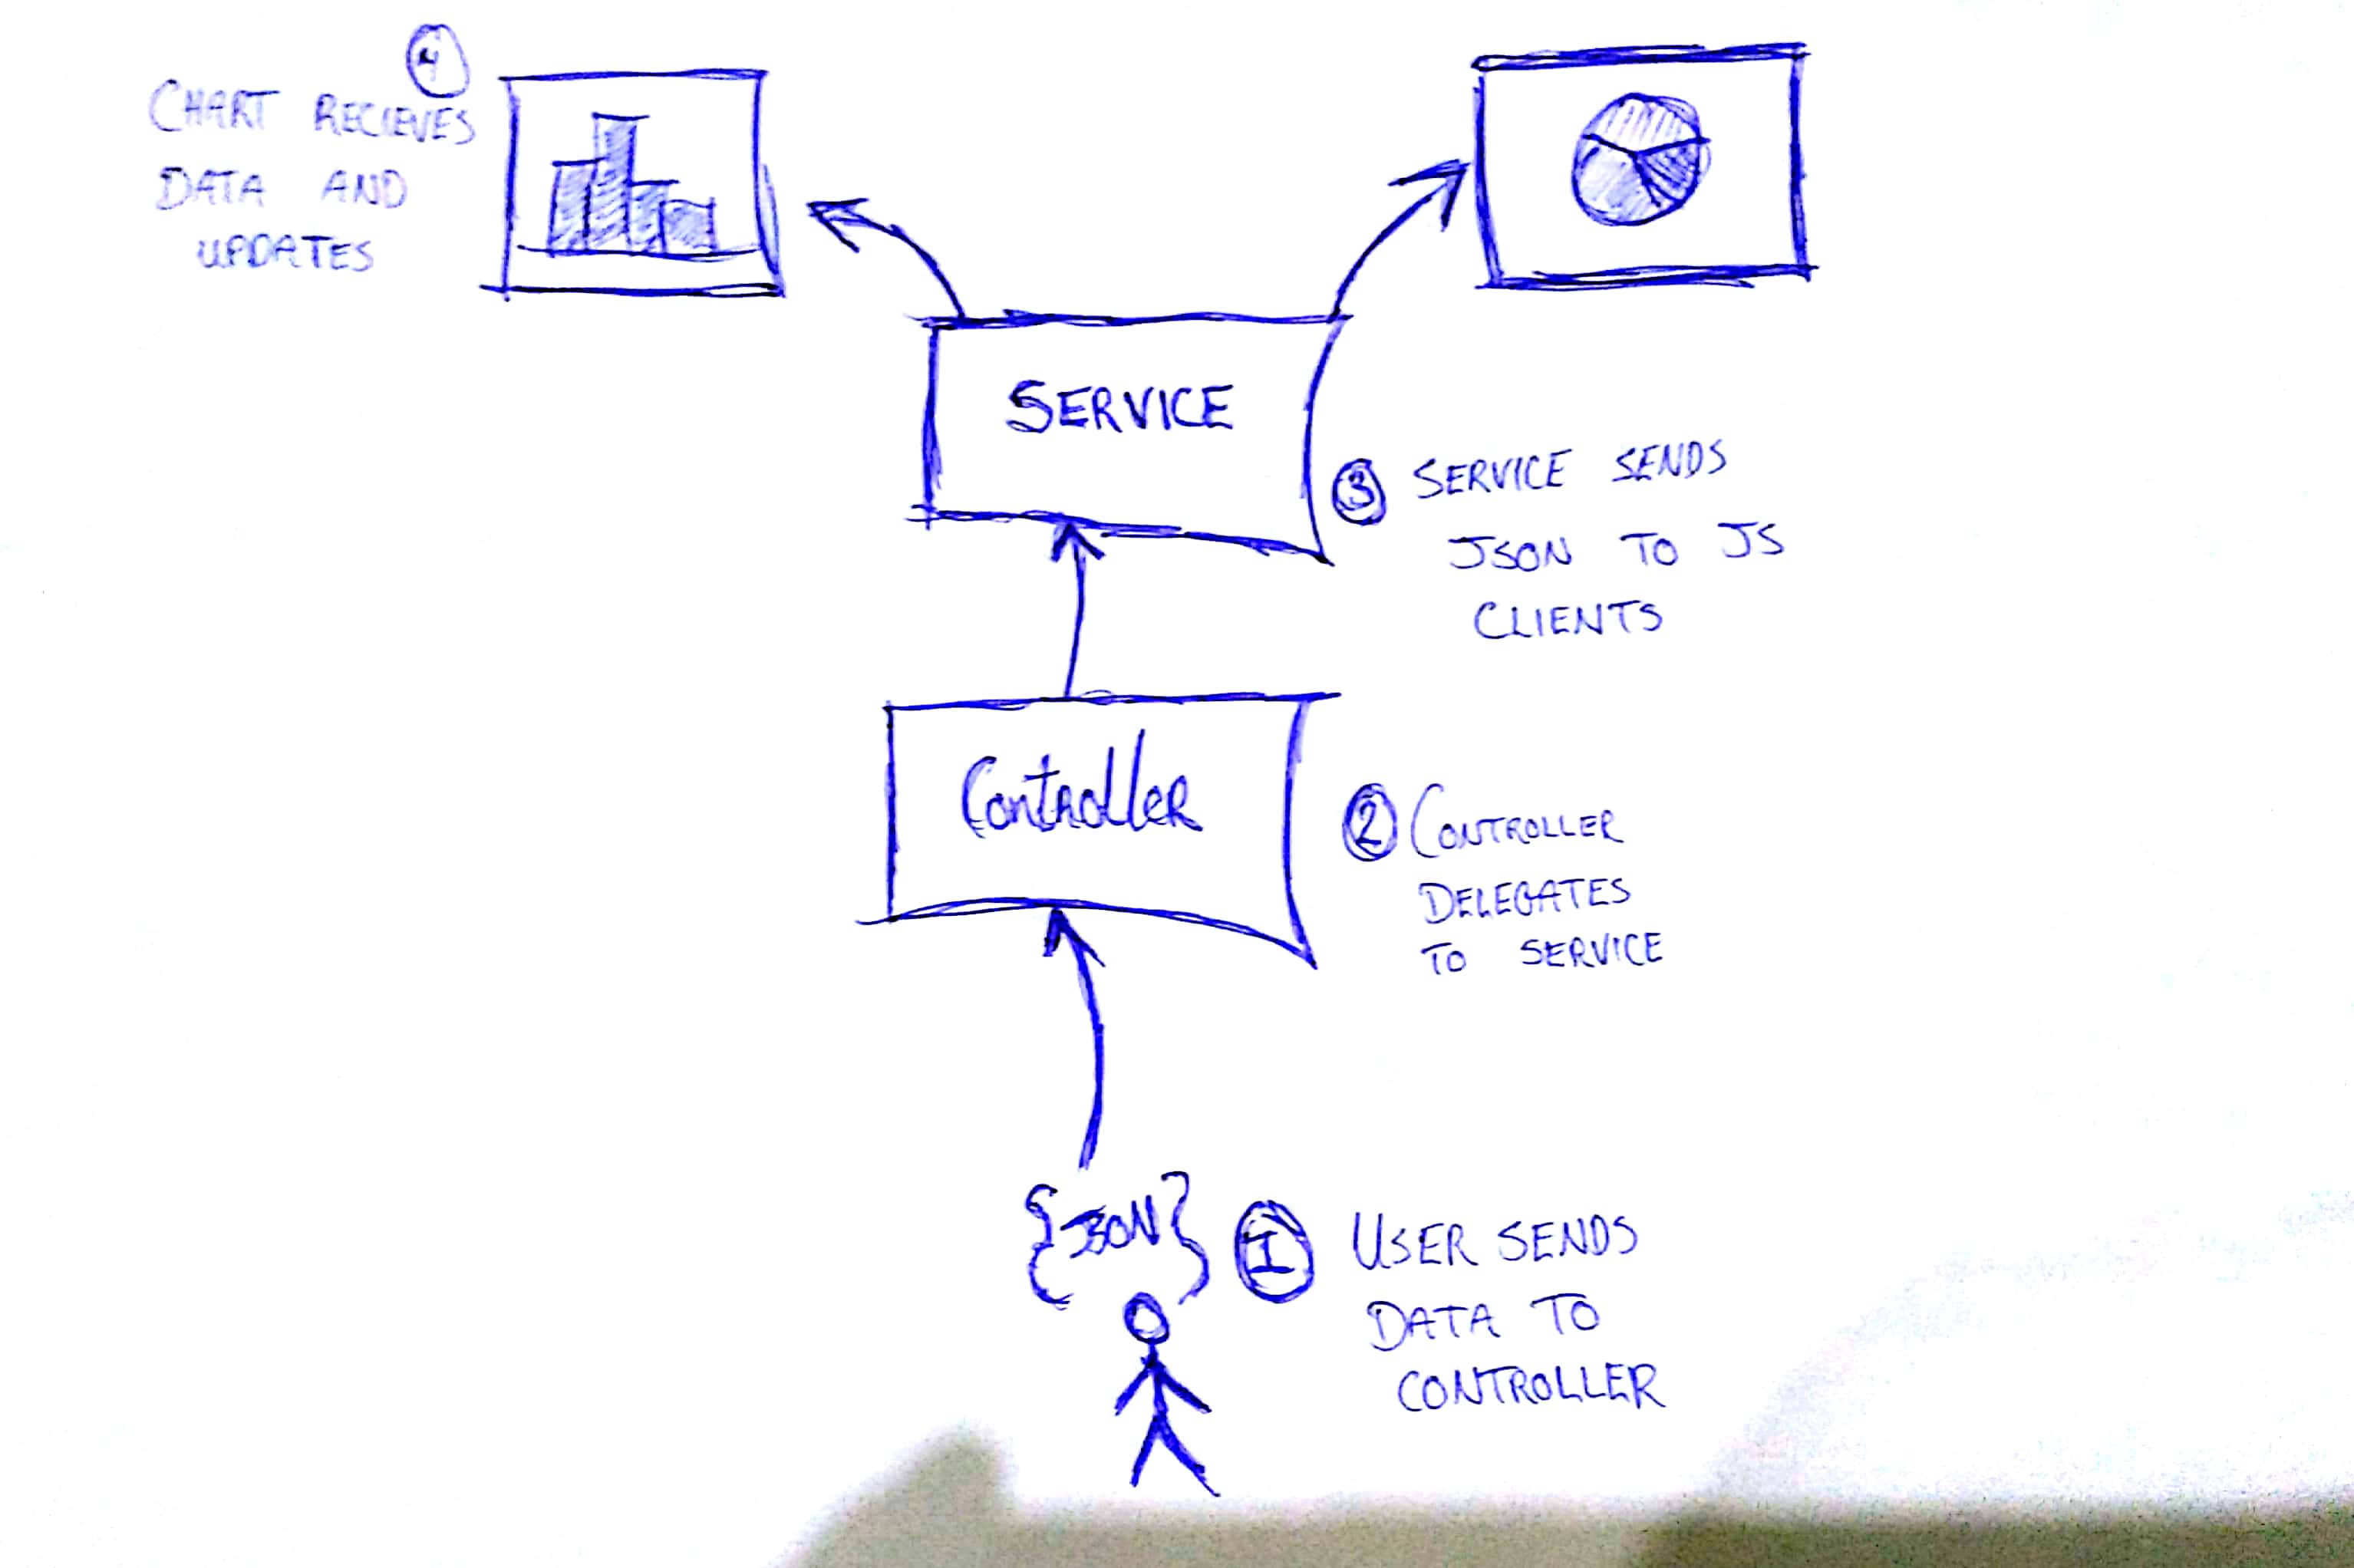 4
CHART RECIEVES
DATA AND
UPDATES
SERVICE
3 SERVICE SENDS
JSON TO JS
CLIENTS
Controller
2 CONTROLLER
DELEGATES
TO SERVICE
{JSON}
1 USER SENDS
DATA TO
CONTROLLER